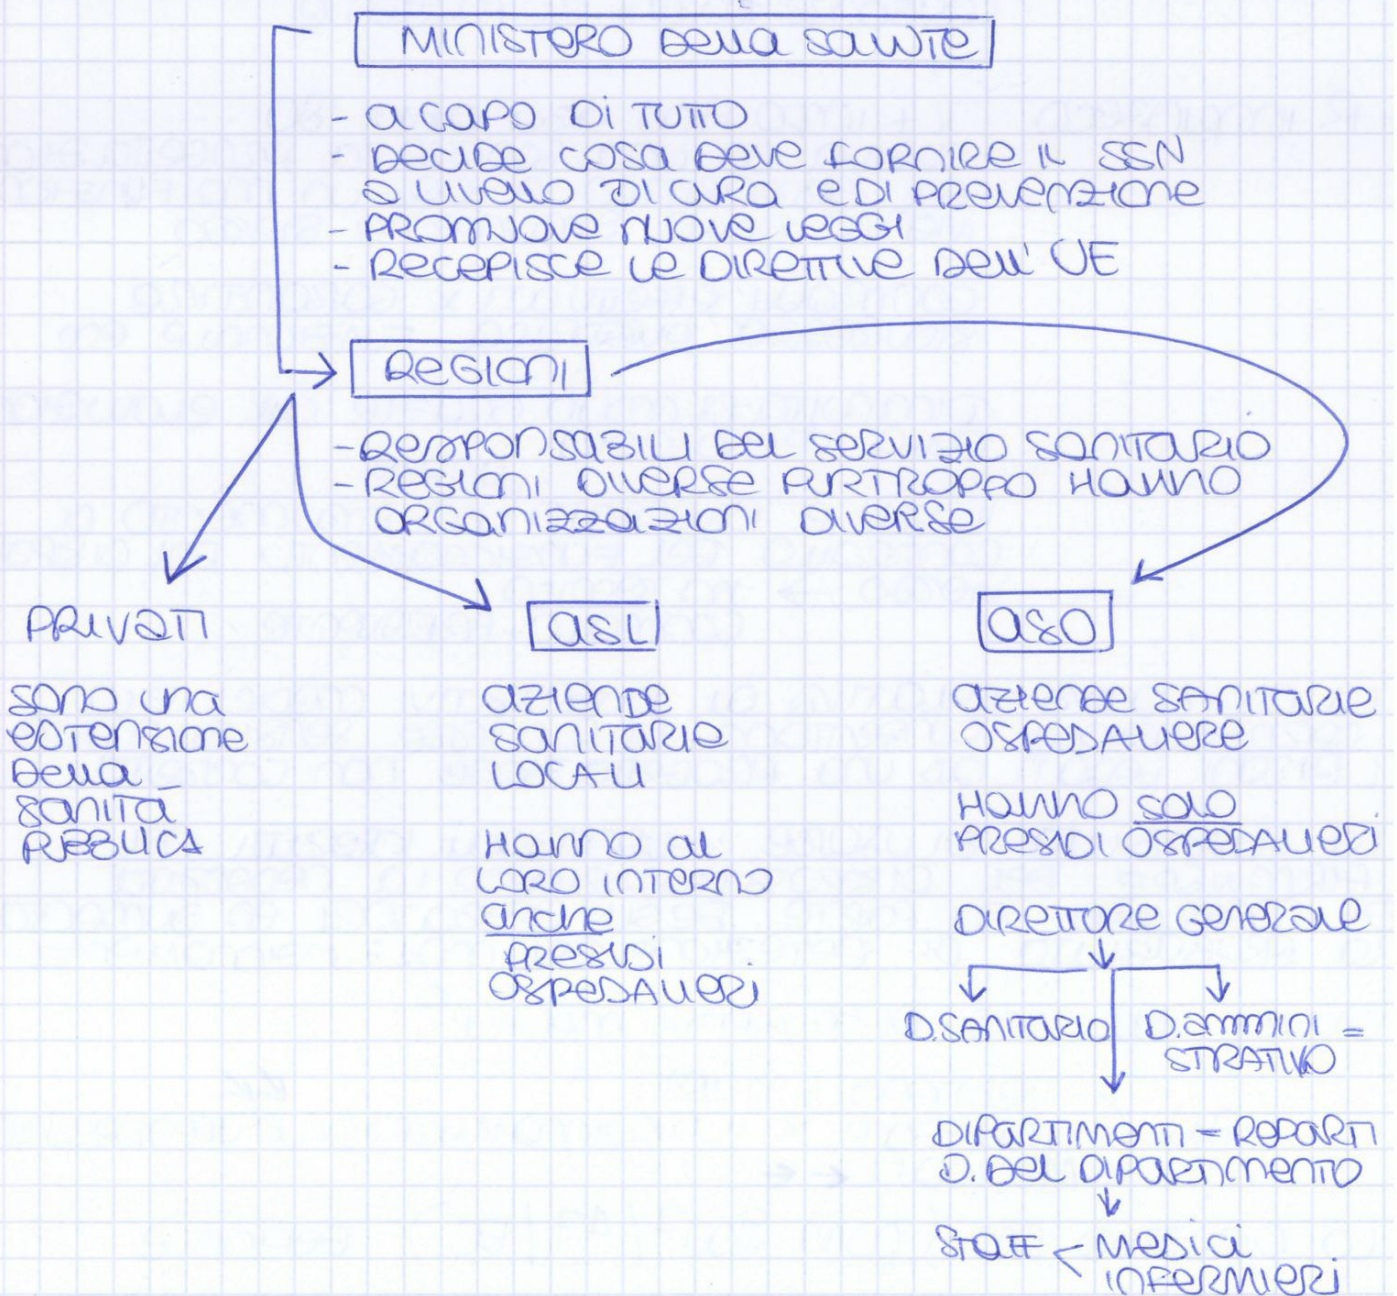 MINISTERO DELLA SALUTE
- A CAPO DI TUTTO
- DECIDE COSA DEVE FORNIRE IL SSN
A LIVELLO DI CURA E DI PREVENZIONE
- PROMUOVE NUOVE LEGGI
- RECEPISCE LE DIRETTIVE DELL' UE
REGIONI
- RESPONSABILI DEL SERVIZIO SANITARIO
- REGIONI DIVERSE PURTROPPO HANNO
ORGANIZZAZIONI DIVERSE
PRIVATI
SONO UNA
ESTENSIONE
DELLA
SANITÀ
PUBBLICA
ASL
AZIENDE
SANITARIE
LOCALI
HANNO AL
LORO INTERNO
ANCHE
PRESIDI
OSPEDALIERI
ASO
AZIENDE SANITARIE
OSPEDALIERE
HANNO SOLO
PRESIDI OSPEDALIERI
DIRETTORE GENERALE
D. SANITARIO
D. AMMINI =
STRATIVO
DIPARTIMENTI = REPARTI
D. DEL DIPARTIMENTO
STAFF < MEDICI
INFERMIERI